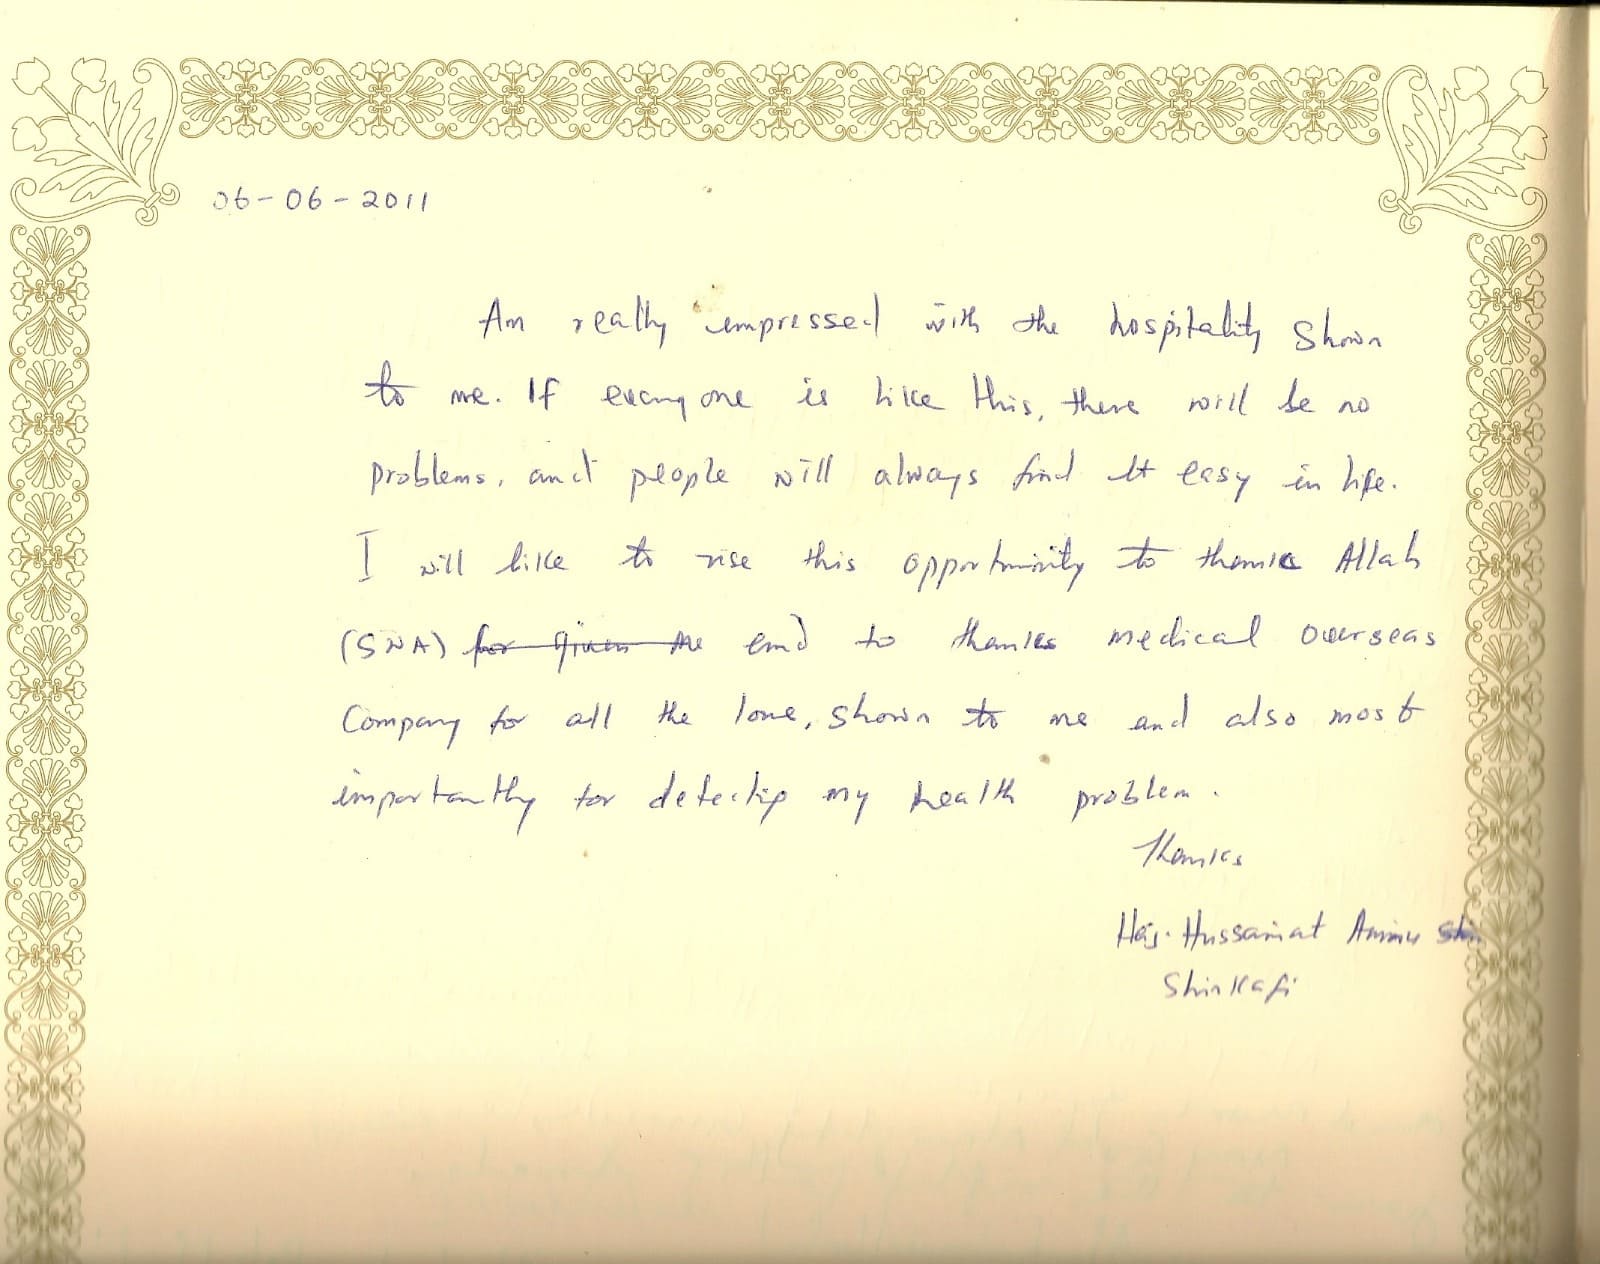 06-06-2011
Am really empressed with the hospitality shown
to me. If everyone is like this, there will be no
problems, and people will always find it easy in life.
I will like to rise this opportunity to thanks Allah
(SWA) for given the and to thanks medical overseas
Company for all the love, shown to me and also most
importantly for detectip my health problem.
Thanks
Haj. Hussainat Aminu Shin
Shinkafi